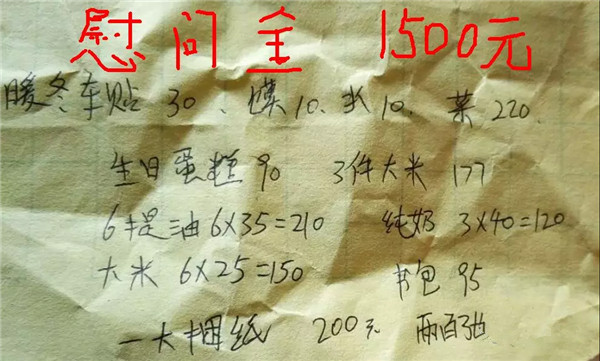 慰问金 1500元
暖冬车贴 30、馍10、米10、菜220、
生日蛋糕90 3件大米 177
6提油 6×35=210 纯奶 3×40=120
大米 6×25=150 书包 95
一大捆纸 200元 两百张